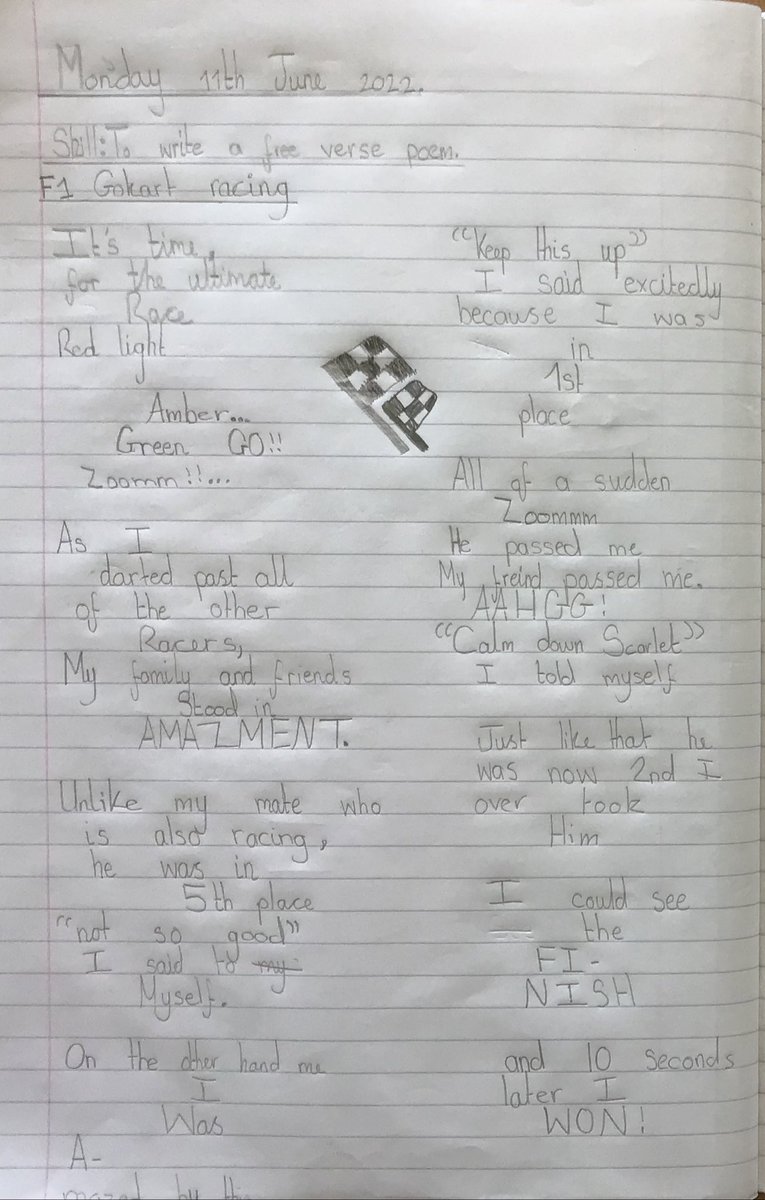 Monday 11th June 2022.
Skill: To write a free verse poem.
F1 Gokart racing
It's time,
for the ultimate
Race
Red light
Amber...
Green GO!!
Zoomm!!...
As I
darted past all
of the other
Racers,
My family and friends
Stood in
AMAZMENT.
Unlike my mate who
is also racing,
he was in
5th place
"not so good"
I said to my
Myself.
On the other hand me
I
Was
A-
mazed by
"Keep this up"
I said excitedly
because I was
in
1st
place
All of a sudden
Zoommm
He passed me
My freind passed me.
AAHGG!
"Calm down Scarlet"
I told myself
Just like that he
was now 2nd I
over took
Him
I could see
the
FI-
NISH
and 10 seconds
later I
WON!